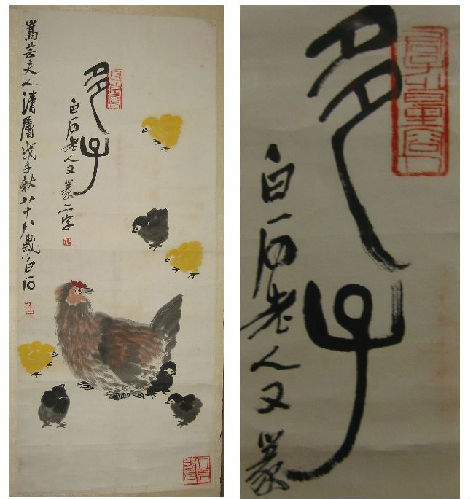 多子
白石老人又篆二字
夫人清屬戊子秋八十八歲白石
多子
白石老人又篆